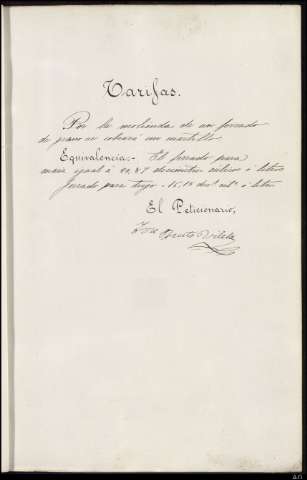 Tarifas.
Por la molienda de un ferrado
de grano se cobrará un maketo
Equivalencia:- El ferrado para
maiz igual á 20,87 decímetros cúbicos ó litros
ferrado para trigo - 16,15 dec.s cub.s ó litros
El Peticionario,
José Benito Vilela